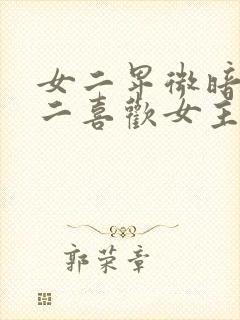 女二卑微暗
二喜歡女主
郭荣章